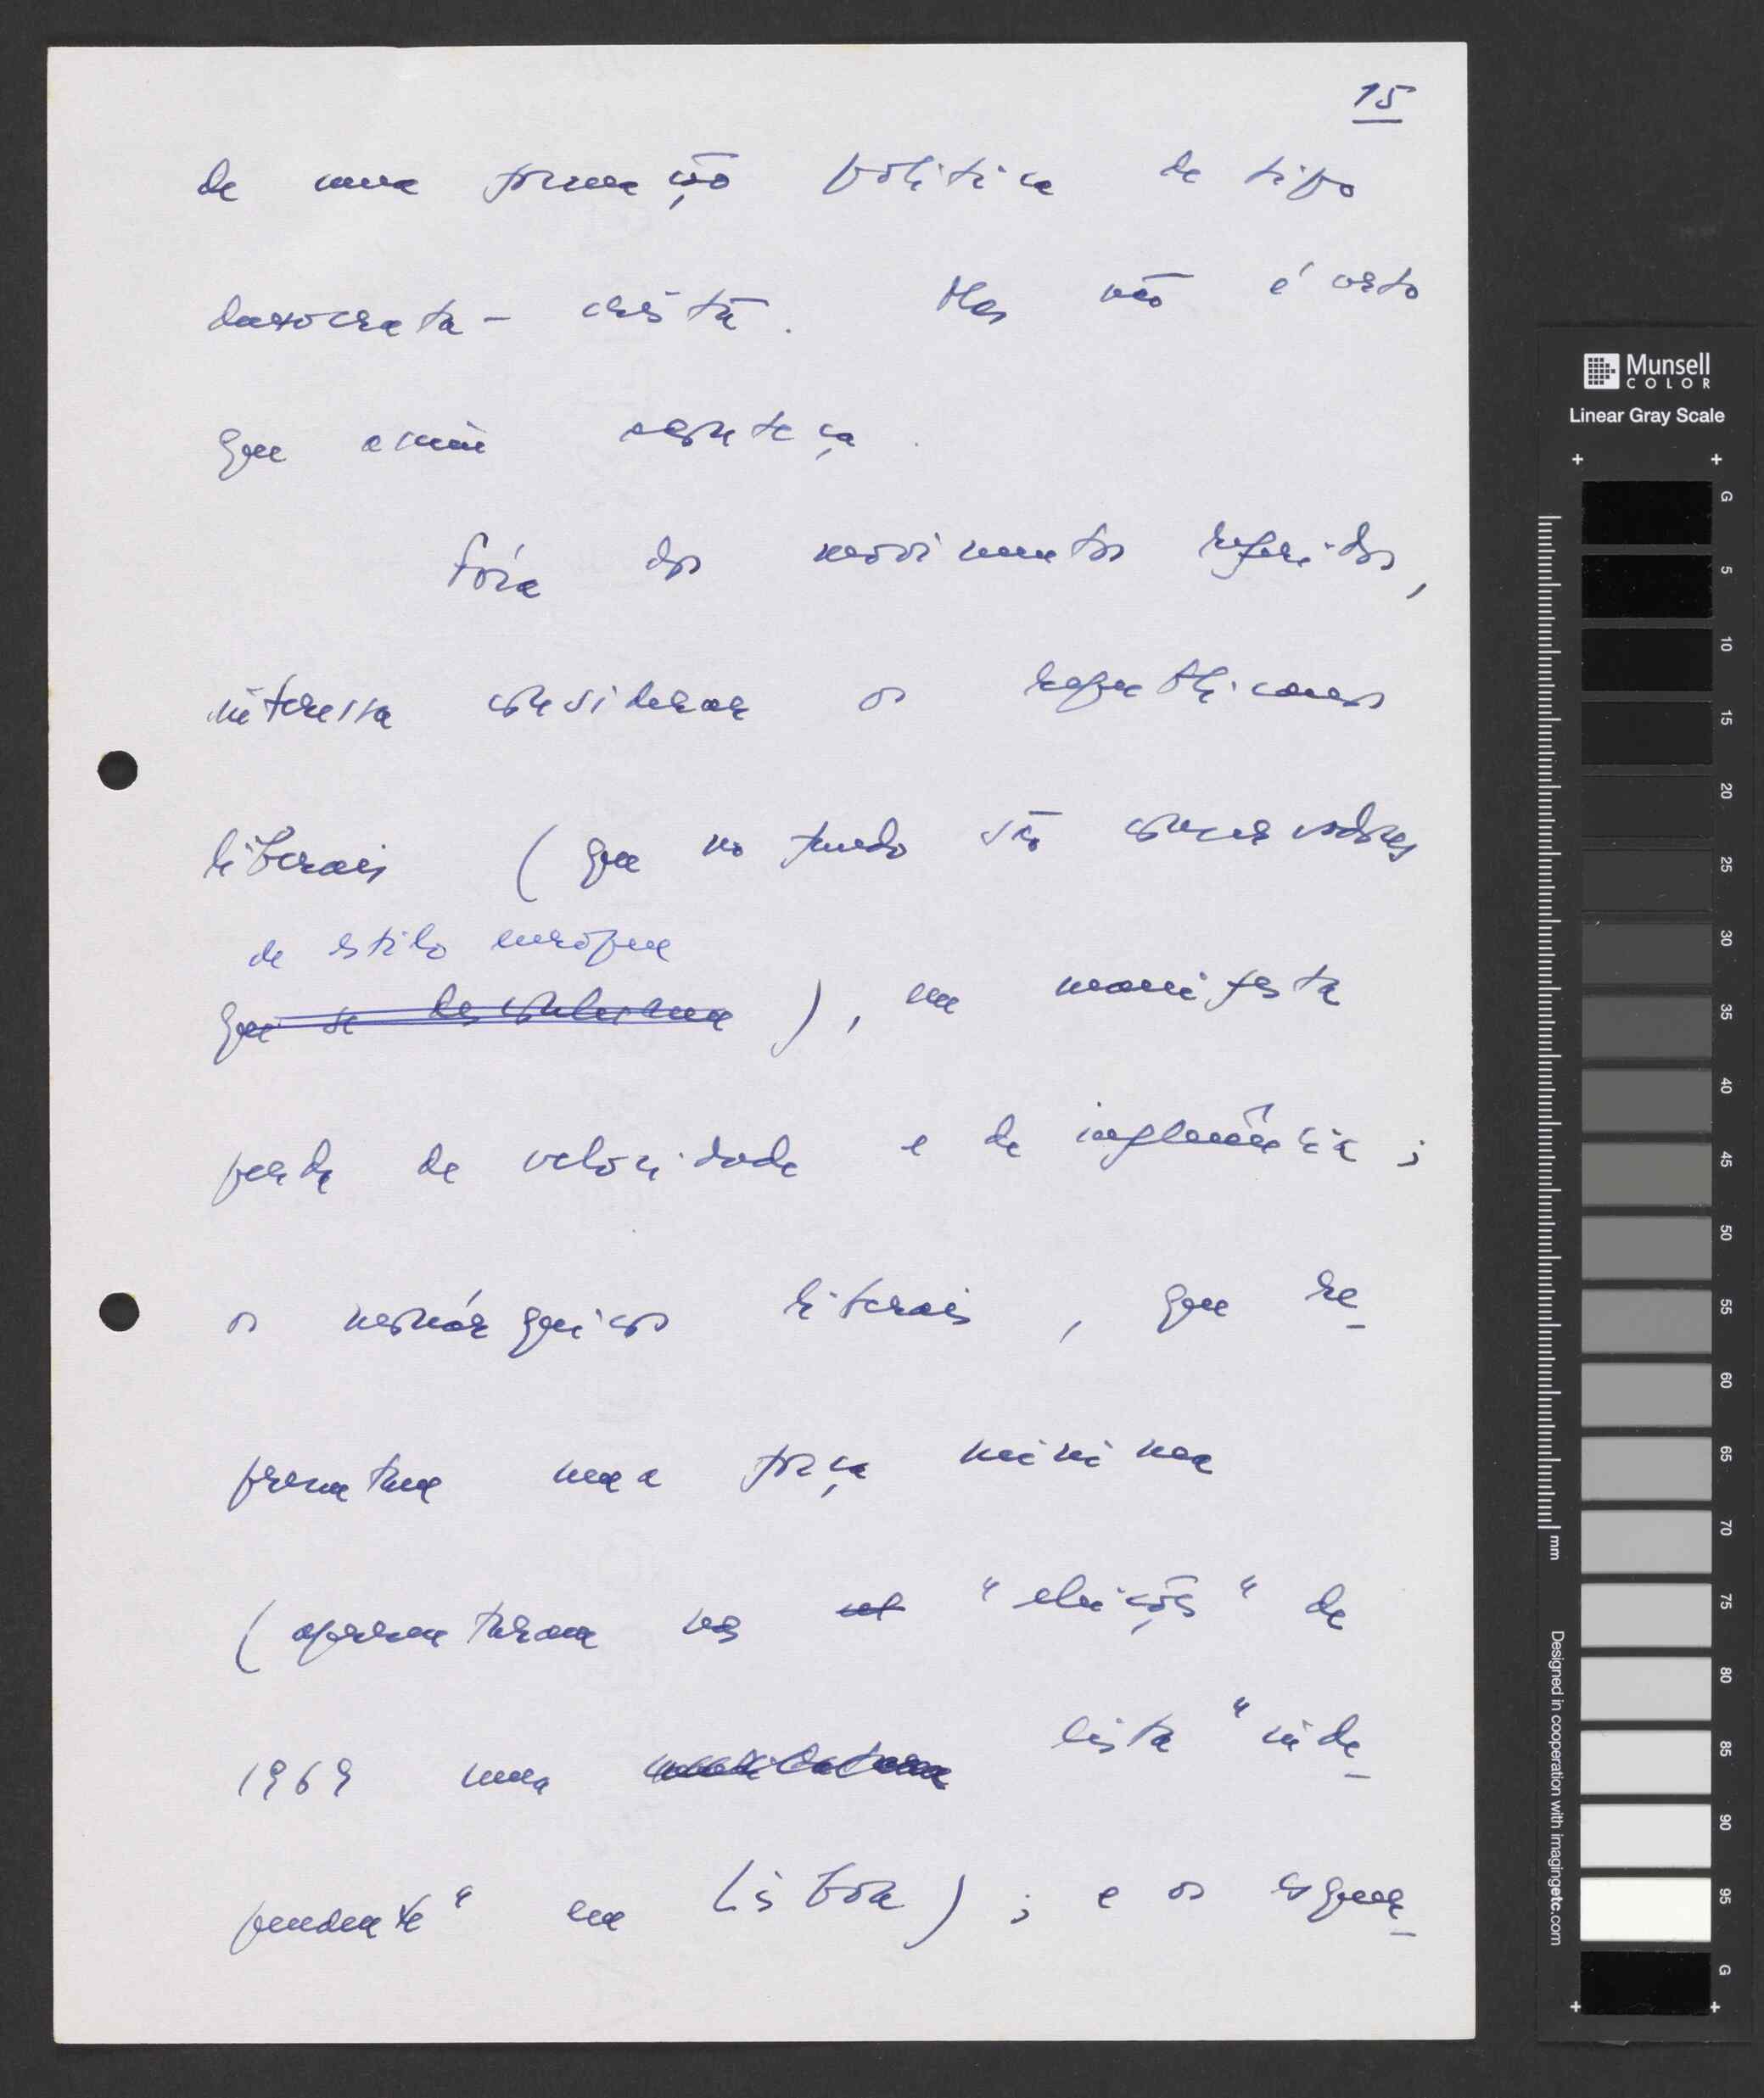 15
de uma formação política de tipo
democrata-cristã. Mas não é certo
que assim aconteça.
Fora dos movimentos referidos,
interessa considerar os republicanos
liberais (que no fundo são conservadores
de estilo europeu
que se desconheciam), em manifesta
perda de velocidade e de influência;
os monárquicos liberais, que re-
presentam uma força mínima
(apresentaram nas "eleições" de
1969 uma candidatura lista "inde-
pendente" em Lisboa); e os esquer-
Munsell
COLOR
Linear Gray Scale
G
5
10
15
20
25
30
35
40
45
50
55
60
65
70
75
80
85
90
95
G
mm
Designed in cooperation with imagingetc.com